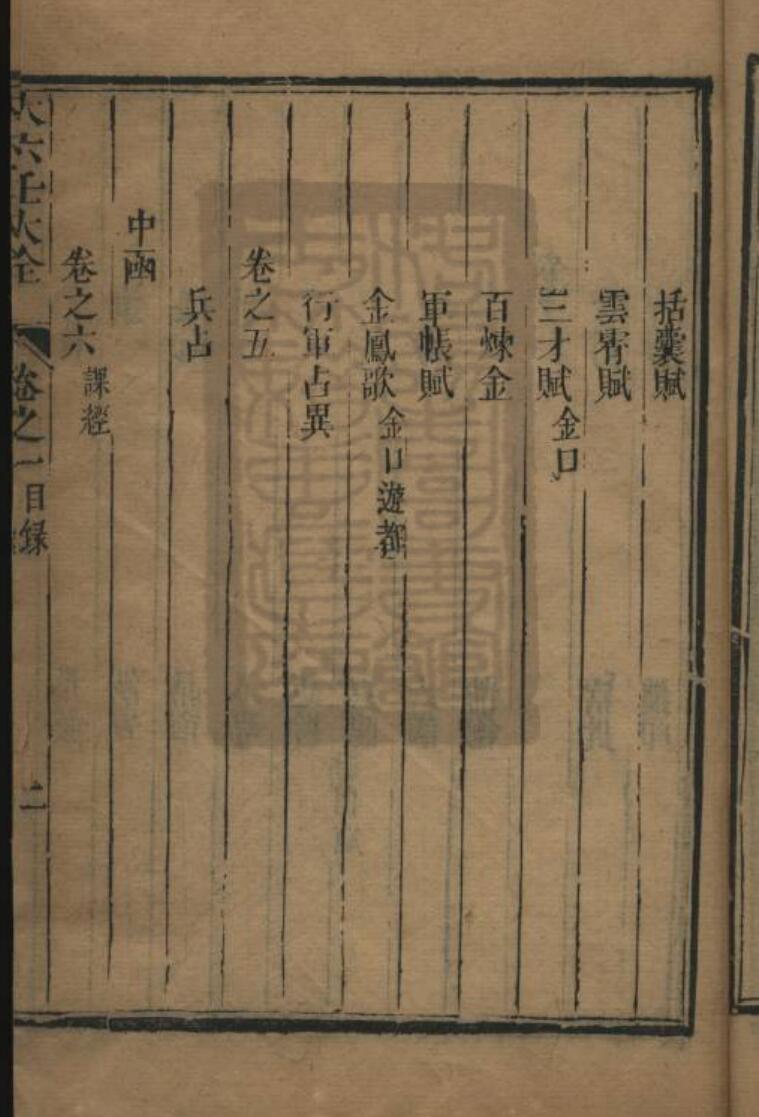 括囊賦
雲霄賦
三才賦 金口
百煉金
軍帳賦
金鳳歌 金口遊都
行軍占異
卷之五
兵占
中函
卷之六 課經
大六壬大全 卷之一目錄 二